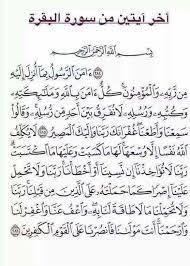 آخر آيتين من سورة البقرة
بِسْمِ اللَّهِ الرَّحْمَٰنِ الرَّحِيمِ
ءَامَنَ الرَّسُولُ بِمَا أُنزِلَ إِلَيْهِ
مِن رَّبِّهِ وَالْمُؤْمِنُونَ كُلٌّ ءَامَنَ بِاللَّهِ وَمَلَٰئِكَتِهِ
وَكُتُبِهِ وَرُسُلِهِ لَا نُفَرِّقُ بَيْنَ أَحَدٍ مِّن رُّسُلِهِ وَقَالُوا
سَمِعْنَا وَأَطَعْنَا غُفْرَانَكَ رَبَّنَا وَإِلَيْكَ الْمَصِيرُ لَا يُكَلِّفُ
اللَّهُ نَفْسًا إِلَّا وُسْعَهَا لَهَا مَا كَسَبَتْ وَعَلَيْهَا مَا اكْتَسَبَتْ
رَبَّنَا لَا تُؤَاخِذْنَا إِن نَّسِينَا أَوْ أَخْطَأْنَا رَبَّنَا وَلَا تَحْمِلْ
عَلَيْنَا إِصْرًا كَمَا حَمَلْتَهُ عَلَى الَّذِينَ مِن قَبْلِنَا رَبَّنَا
وَلَا تُحَمِّلْنَا مَا لَا طَاقَةَ لَنَا بِهِ وَاعْفُ عَنَّا وَاغْفِرْ لَنَا
وَارْحَمْنَا أَنتَ مَوْلَىٰنَا فَانصُرْنَا عَلَى الْقَوْمِ الْكَٰفِرِينَ